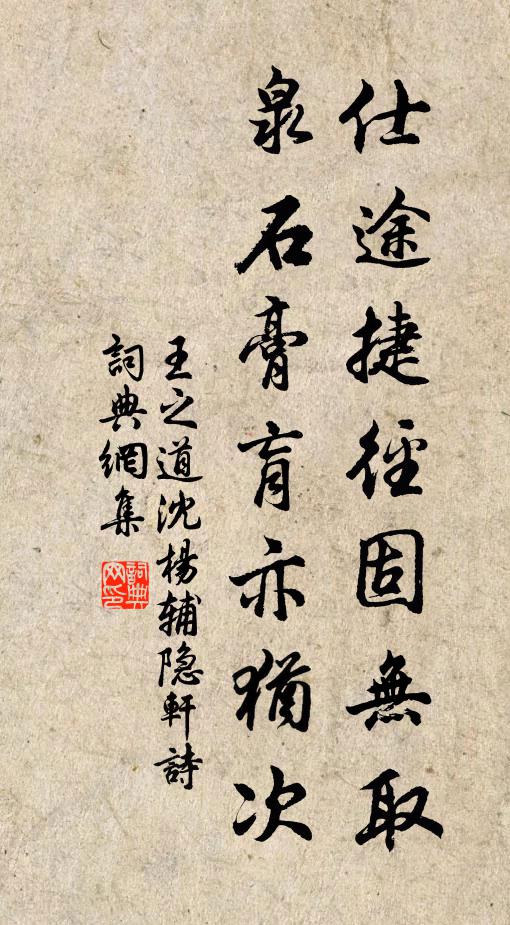 仕途捷徑固無取
泉石膏肓亦猶次
王之道沈楊輔隐軒詩
詞典網集
詞典
网印